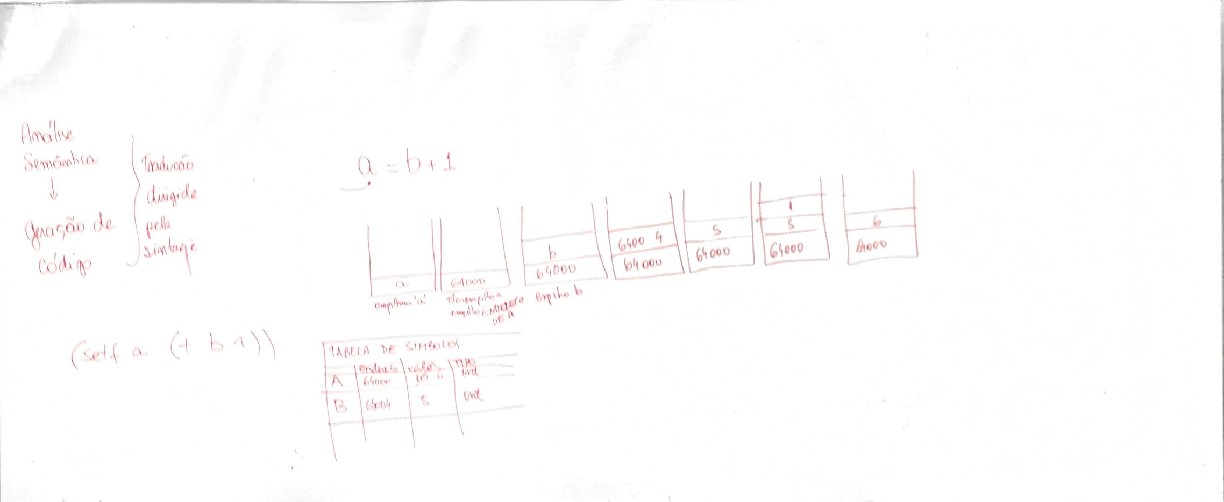 Análise
Semântica
↓
Geração de
código
Tradução
dirigida
pela
sintaxe
a = b + 1
a
empilhar 'a'
64000
desempilha
empilha ENDEREÇO
DE A
b
64000
empilha b
6400 4
64000
5
64000
1
5
64000
6
64000
(setf a (+ b 1))
TABELA DE SIMBOLOS
endereço valor tipo
A 64000 10 int
B 64004 5 int